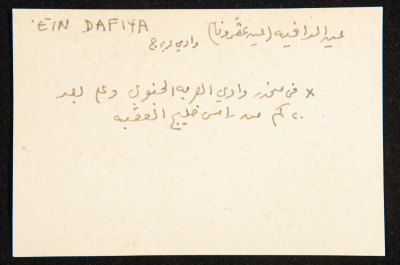 'EIN DAFIYA
عين الدافيه (عين غضرونا)
وادي عربه ج
x في منحدر وادي العربه الجنوبي وعلى بعد
٢٠ كم من راس خليج العقبه